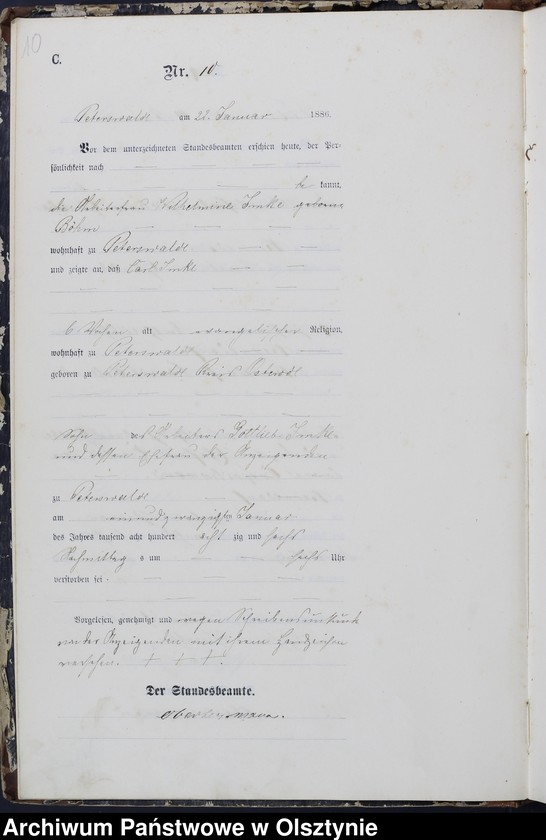 10
C.
Nr. 10.
Peterswalde am 22. Januar 1886.
Vor dem unterzeichneten Standesbeamten erschien heute, der Per-
sönlichkeit nach
be kannt,
die Arbeiterfrau Wilhelmine geborene
Böhm
wohnhaft zu Peterswalde
und zeigte an, daß Carl
6 Wochen alt evangelischer Religion,
wohnhaft zu Peterswalde
geboren zu Peterswalde Kreis
Sohn des Arbeiters Gottlieb
und dessen Ehefrau der Anzeigenden
zu Peterswalde
am einundzwanzigsten Januar
des Jahres tausend acht hundert acht zig und sechs
Nachmittag s um sechs Uhr
verstorben sei.
Vorgelesen, genehmigt und wegen Schreibensunkunde
von der Anzeigenden mit ihrem Handzeichen
versehen. + + +.
Der Standesbeamte.
Archiwum Państwowe w Olsztynie